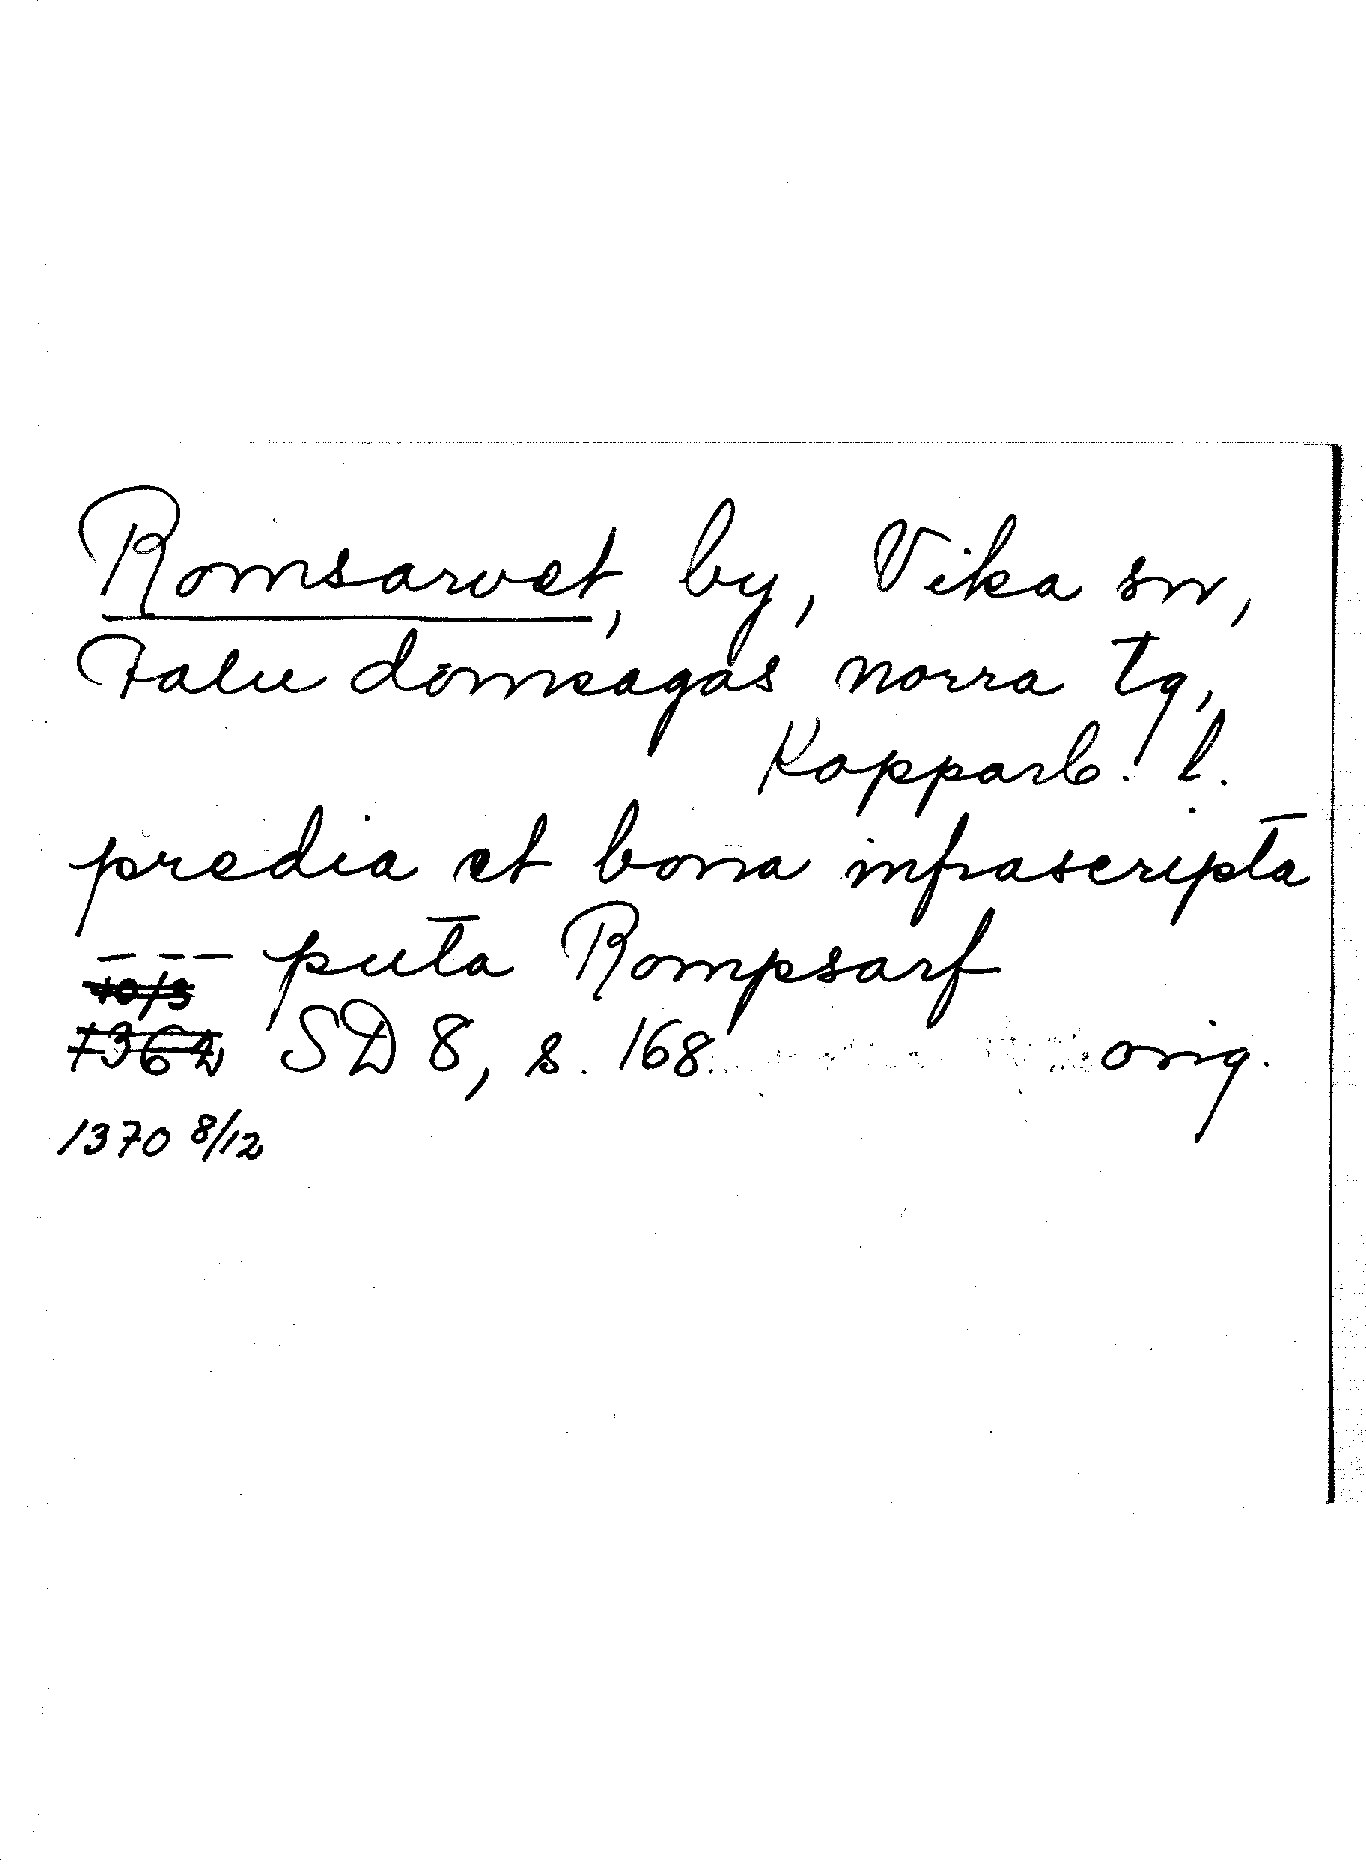 Romsarvet, by, Vika sn,
Falu domsagas norra tg,
Kopparb. l.
predia et bona infrascripta
--- puta Rompsarf
10/3
1362 SD 8, s. 168 orig.
1370 8/12